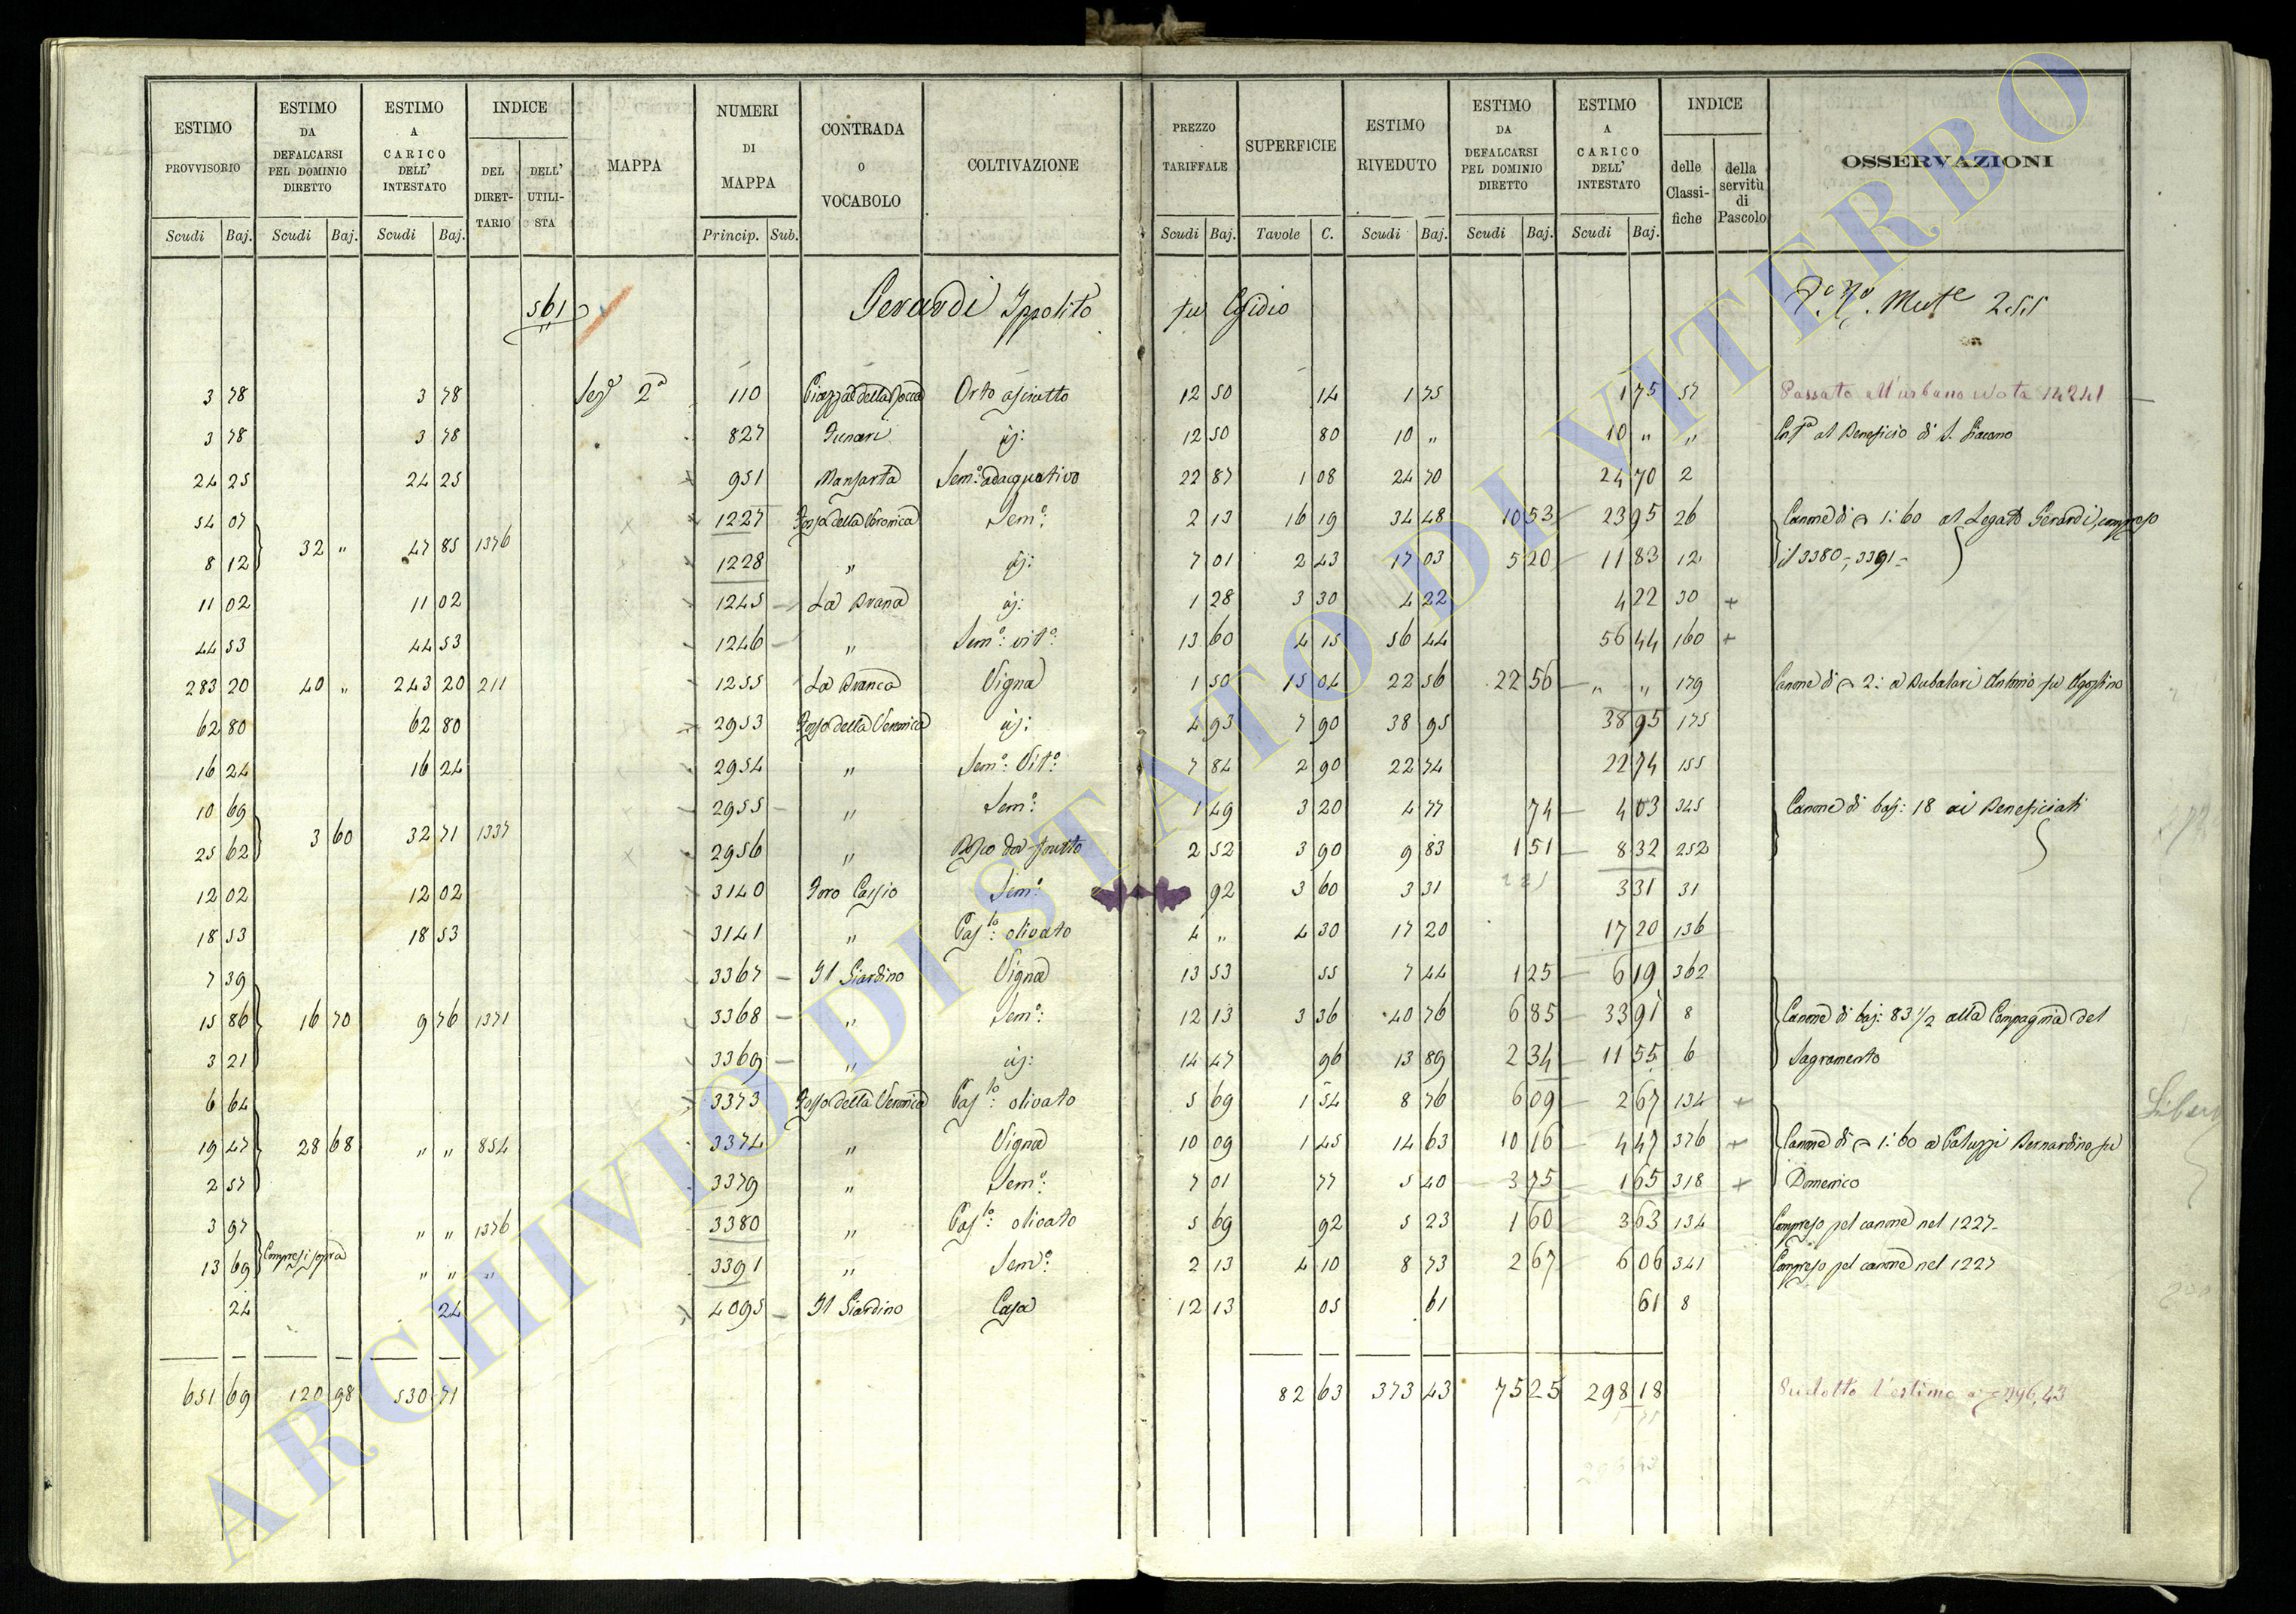 ESTIMO PROVVISORIO | ESTIMO DA DEFALCARSI PEL DOMINIO DIRETTO | ESTIMO A CARICO DELL' INTESTATO | INDICE DEL DIRETTARIO | DELL' UTILISTA | MAPPA | NUMERI DI MAPPA | CONTRADA o VOCABOLO | COLTIVAZIONE | PREZZO TARIFFALE | SUPERFICIE | ESTIMO RIVEDUTO | ESTIMO DA DEFALCARSI PEL DOMINIO DIRETTO | ESTIMO A CARICO DELL' INTESTATO | INDICE delle Classifiche | della servitù di Pascolo | OSSERVAZIONI
Scudi Baj. | Scudi Baj. | Scudi Baj. | Princip. Sub. | Scudi Baj. | Tavole C. | Scudi Baj. | Scudi Baj. | Scudi Baj.
561 Gerardi Ippolito fu Egidio 255
3 78 | 3 78 | Sez. 2a | 110 | Piazza della Rocca | Orto asciutto | 12 50 | 14 | 1 75 | 1 75 | 57 | Passato all'urbano Nota 14241
3 78 | 3 78 | 827 | Funari | id: | 12 50 | 80 | 10 " | 10 " | " | al Beneficio di S. Giacomo
24 25 | 24 25 | 951 | Manfarta | Sem.o adacquativo | 22 87 | 1 08 | 24 70 | 24 70 | 2
54 07 | 1227 | Fosso della Veronica | Sem.o: | 2 13 | 16 19 | 34 48 | 10 53 | 23 95 | 26 | Canone di 1:60 al Legato Gerardi, compreso
8 12 | 32 " | 47 85 | 1376 | 1228 | " | id: | 7 01 | 2 43 | 17 03 | 5 20 | 11 83 | 12 | il 3380, 3391
11 02 | 11 02 | 1245 | La Branca | id: | 1 28 | 3 30 | 4 22 | 4 22 | 30 | +
44 53 | 44 53 | 1246 | " | Sem.o: vit.o: | 13 60 | 4 15 | 56 44 | 56 44 | 160 | +
283 20 | 40 " | 243 20 | 211 | 1255 | La Branca | Vigna | 1 50 | 15 04 | 22 56 | 22 56 | " " | 179 | Canone di 2: a Antonio fu Agostino
62 80 | 62 80 | 2953 | Fosso della Veronica | id: | 4 93 | 7 90 | 38 95 | 38 95 | 175
16 24 | 16 24 | 2954 | " | Sem.o: Vit.o: | 7 84 | 2 90 | 22 74 | 22 74 | 155
10 69 | 2955 | " | Sem.o: | 1 49 | 3 20 | 4 77 | 74 | 4 03 | 345 | Canone di baj: 18 ai Beneficiati
25 62 | 3 60 | 32 71 | 1337 | 2956 | " | Bosco da frutto | 2 52 | 3 90 | 9 83 | 1 51 | 8 32 | 252
12 02 | 12 02 | 3140 | Foro Cassio | Sem.o: | 92 | 3 60 | 3 31 | 3 31 | 31
18 53 | 18 53 | 3141 | " | Pas.lo: olivato | 4 " | 4 30 | 17 20 | 17 20 | 136
7 39 | 3367 | Il Giardino | Vigna | 13 53 | 55 | 7 44 | 1 25 | 6 19 | 362
15 86 | 16 70 | 9 76 | 1371 | 3368 | " | Sem.o: | 12 13 | 3 36 | 40 76 | 6 85 | 33 91 | 8 | Canone di baj: 83 1/2 alla Compagnia del
3 21 | 3369 | " | id: | 14 47 | 96 | 13 89 | 2 34 | 11 55 | 6 | Sagramento
6 64 | 3373 | Fosso della Veronica | Pas.lo: olivato | 5 69 | 1 54 | 8 76 | 6 09 | 2 67 | 134 | +
19 47 | 28 68 | " " | 854 | 3374 | " | Vigna | 10 09 | 1 45 | 14 63 | 10 16 | 4 47 | 376 | + | Canone di 1:60 a Paluzzi Bernardino fu
2 57 | 3379 | " | Sem.o: | 7 01 | 77 | 5 40 | 3 75 | 1 65 | 318 | + | Domenico
3 97 | " " | 1376 | 3380 | " | Pas.lo: olivato | 5 69 | 92 | 5 23 | 1 60 | 3 63 | 134 | Compreso pel canone nel 1227
13 69 | Compresi sopra | " " | " | 3391 | " | Sem.o: | 2 13 | 4 10 | 8 73 | 2 67 | 6 06 | 341 | Compreso pel canone nel 1227
24 | 24 | 4095 | Il Giardino | Casa | 12 13 | 05 | 61 | 61 | 8
651 69 | 120 98 | 530 71 | 82 63 | 373 43 | 75 25 | 298 18 | Ridotto l'estimo a 296,43
ARCHIVIO DI STATO DI VITERBO